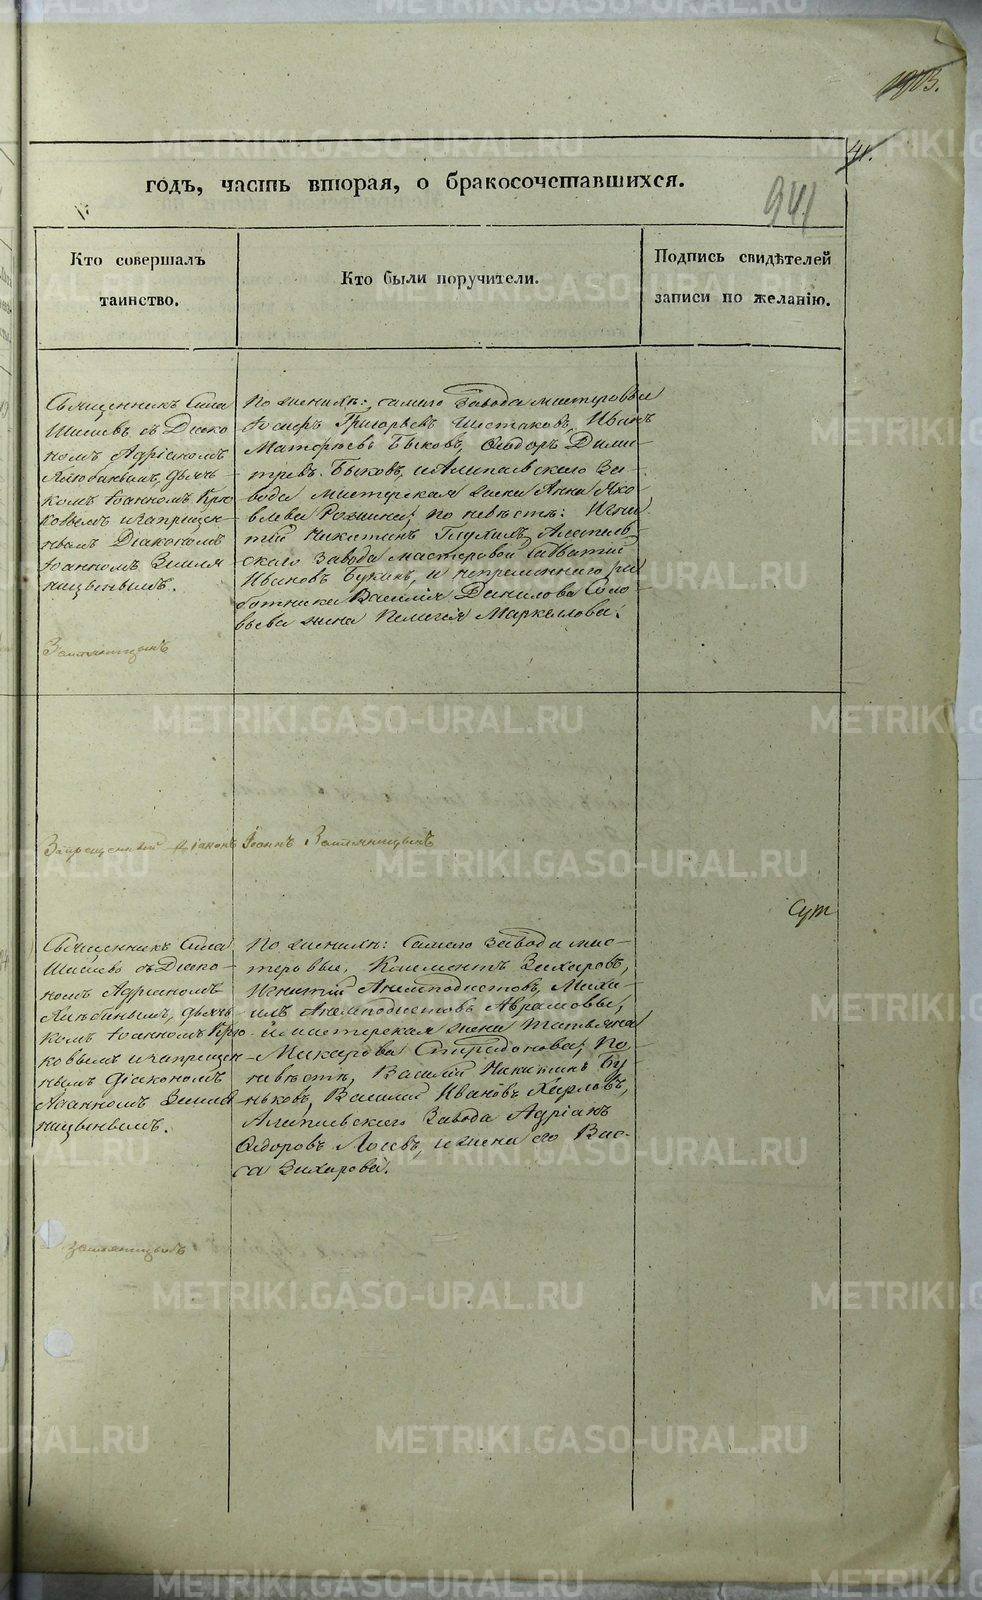 41.
941
годъ, часть вторая, о бракосочетавшихся.
Кто совершалъ таинство.
Кто были поручители.
Подпись свидѣтелей записи по желанію.
Священникъ Сила
Шишевъ съ Діако-
номъ Адріаномъ
дьяч-
комъ Іоанномъ Крю
ковымъ и запрещен-
нымъ Діакономъ
Іоанномъ Земля
ницынымъ.
Земляницынъ
По женихѣ: самаго завода мастеровые
Іосифъ Григорьевъ Шестаковъ, Иванъ
Матѳеевъ Быковъ, Ѳедоръ Дими-
тріевъ Быковъ, и Алапаевскаго За-
вода мастерская жена Анна Яко-
влева по невѣстѣ: Игна
тій Никитинъ Глухихъ, Алапаев-
скаго Завода мастеровой Савватій
Ивановъ Букинъ, и непремѣннаго ра
ботника Василія Данилова Соло-
вьева жена Пелагія Маркеллова.
Запрещенный Діаконъ Іоаннъ Земляницынъ
Сут
Священникъ Сила
Шишевъ съ Діако-
номъ Адріаномъ
дьяч-
комъ Іоанномъ Крю
ковымъ и запрещен
нымъ Діакономъ
Іоанномъ Земля
ницынымъ.
Земляницынъ
По женихѣ: Самаго завода мас-
теровые, Климентъ Захаровъ,
Игнатій Анемподистовъ, Миха-
илъ Анемподистовъ Аврамовы,
И мастерская жена Татьяна
Макарова Спиридонова; По
невѣстѣ, Василій Никитинъ Бу
ньковъ, Василій Ивановъ Харловъ,
Алапаевскаго Завода Адріанъ
Ѳедоровъ Лосевъ, и жена его Вас-
са Захарова.
METRIKI.GASO-URAL.RU